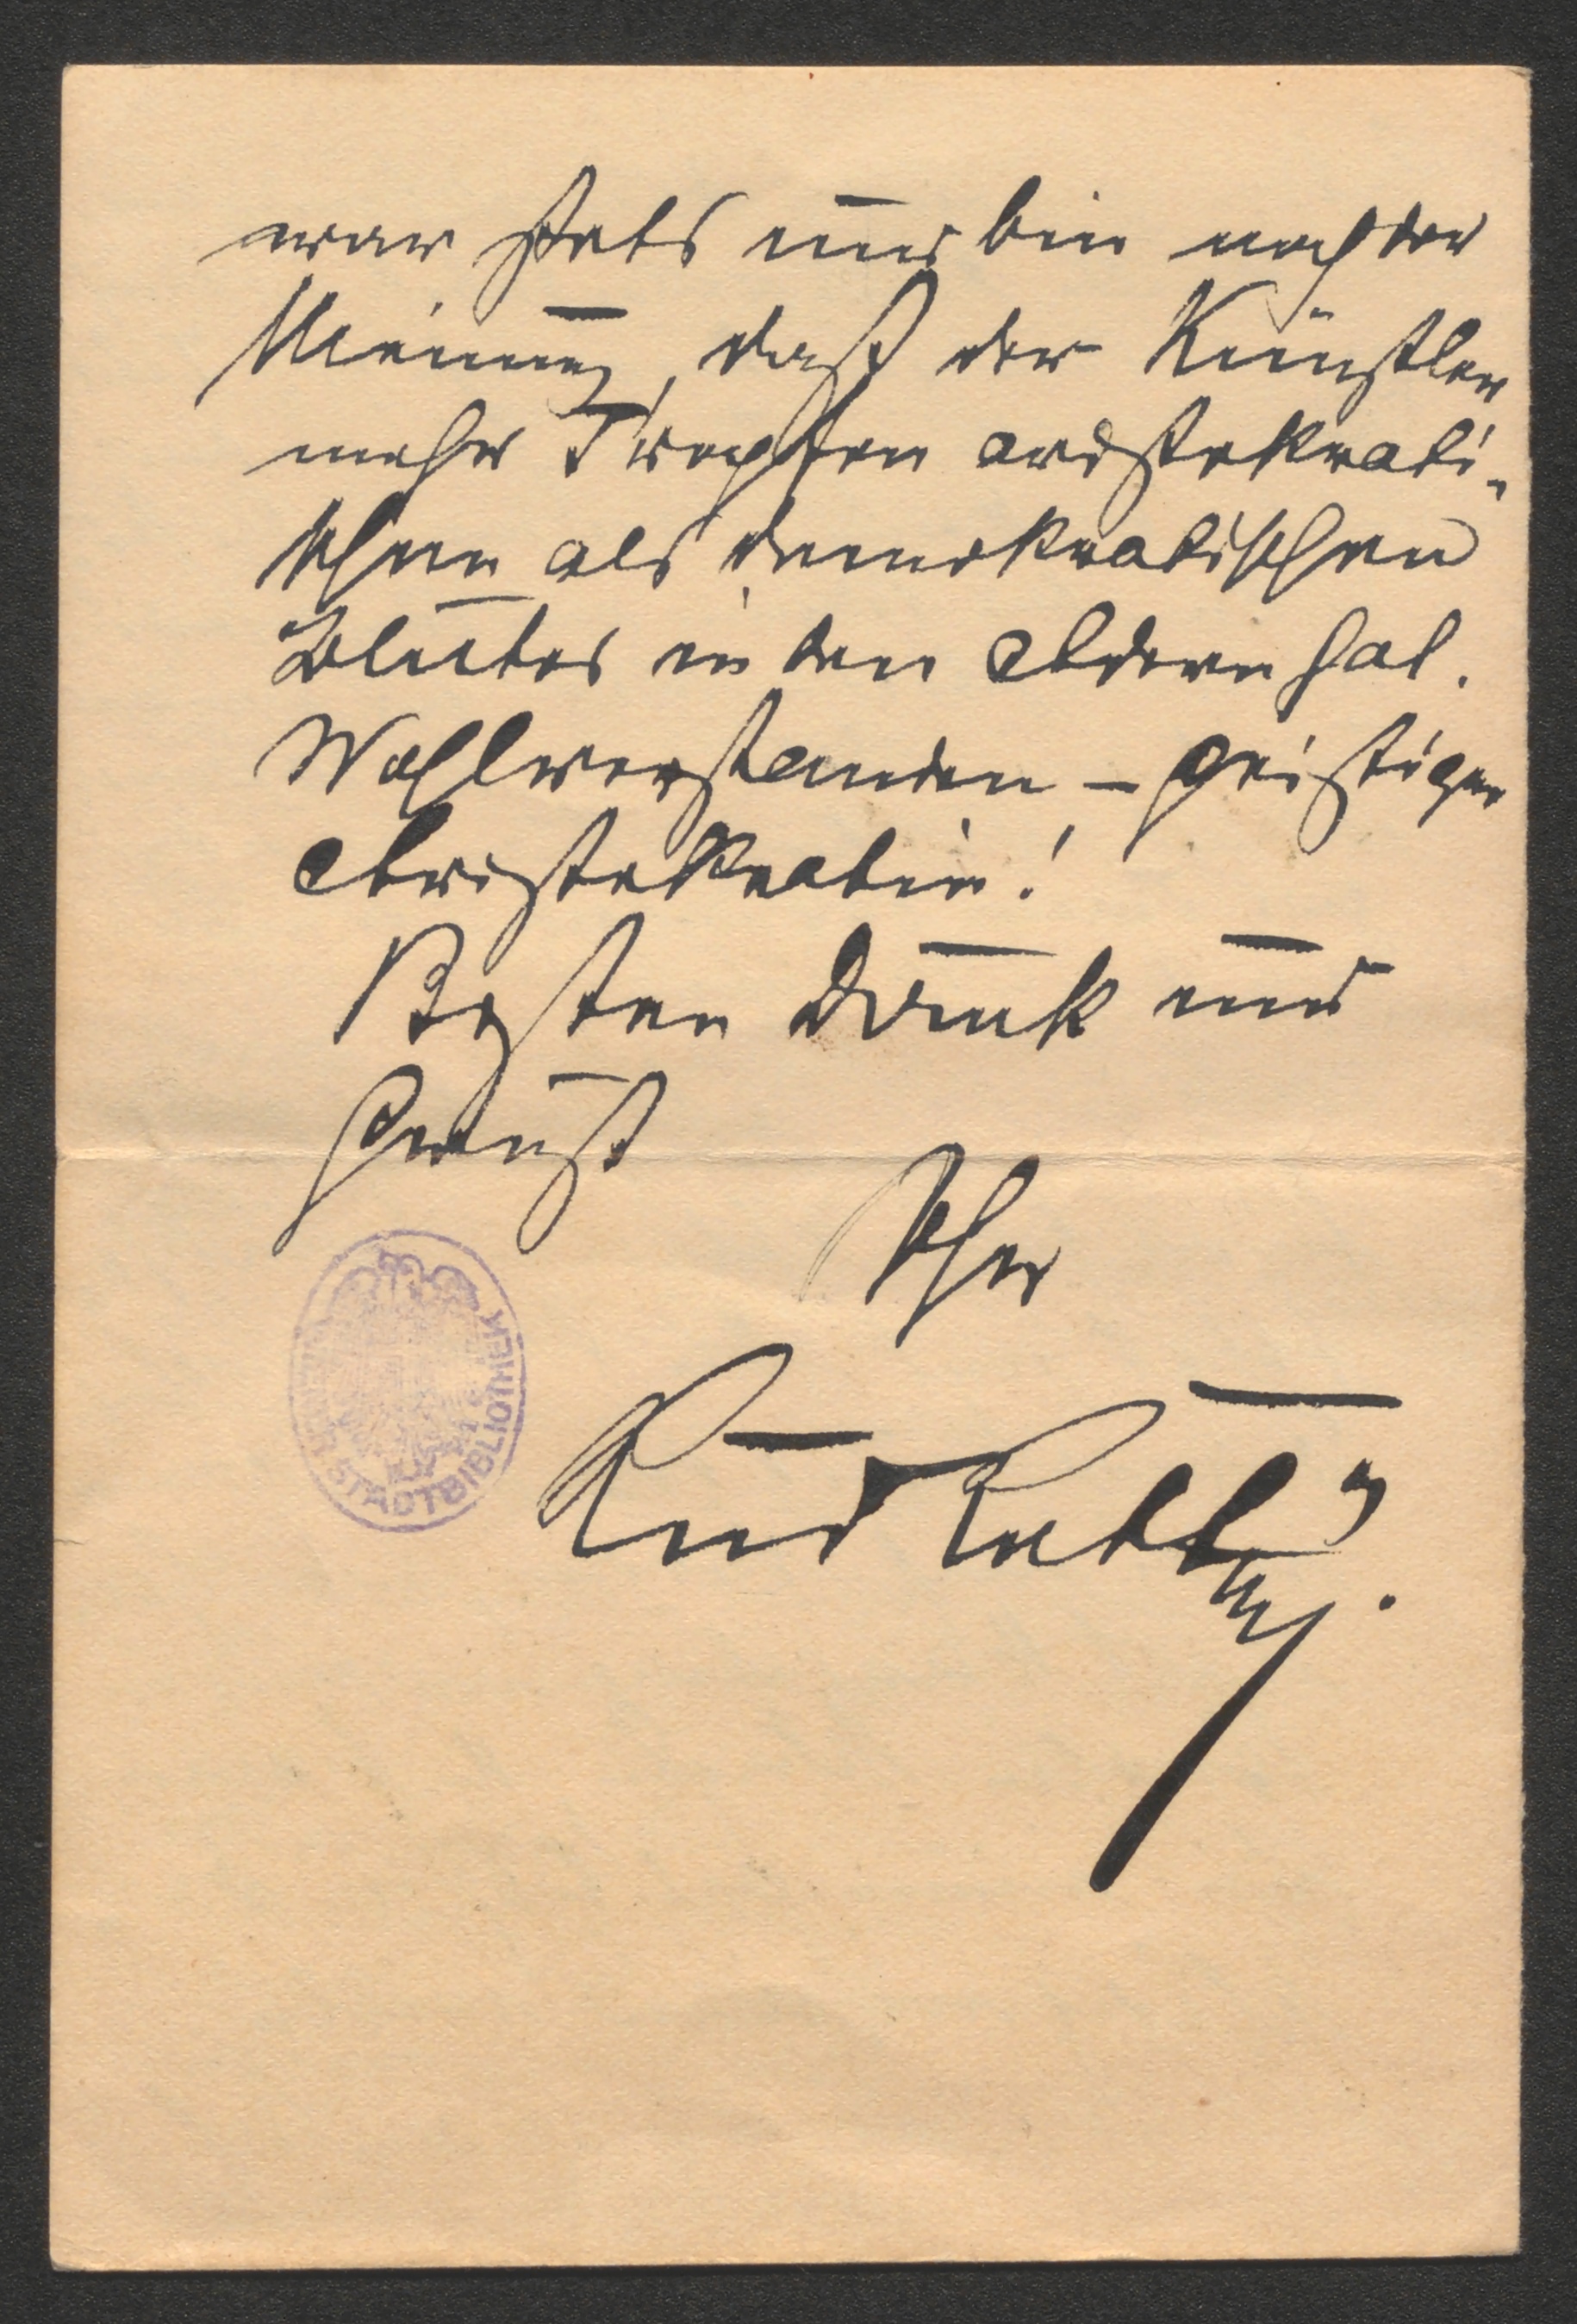 war stets und bin noch der
Meinung, daß der Künstler
mehr Tropfen aristokrati-
schen als demokratischen
Blutes in den Adern hat.
Wohlverstanden, – geistiger
Aristokratie!
Besten Dank und
Gruß
Ihr
Rud
STADTBIBLIOTHEK